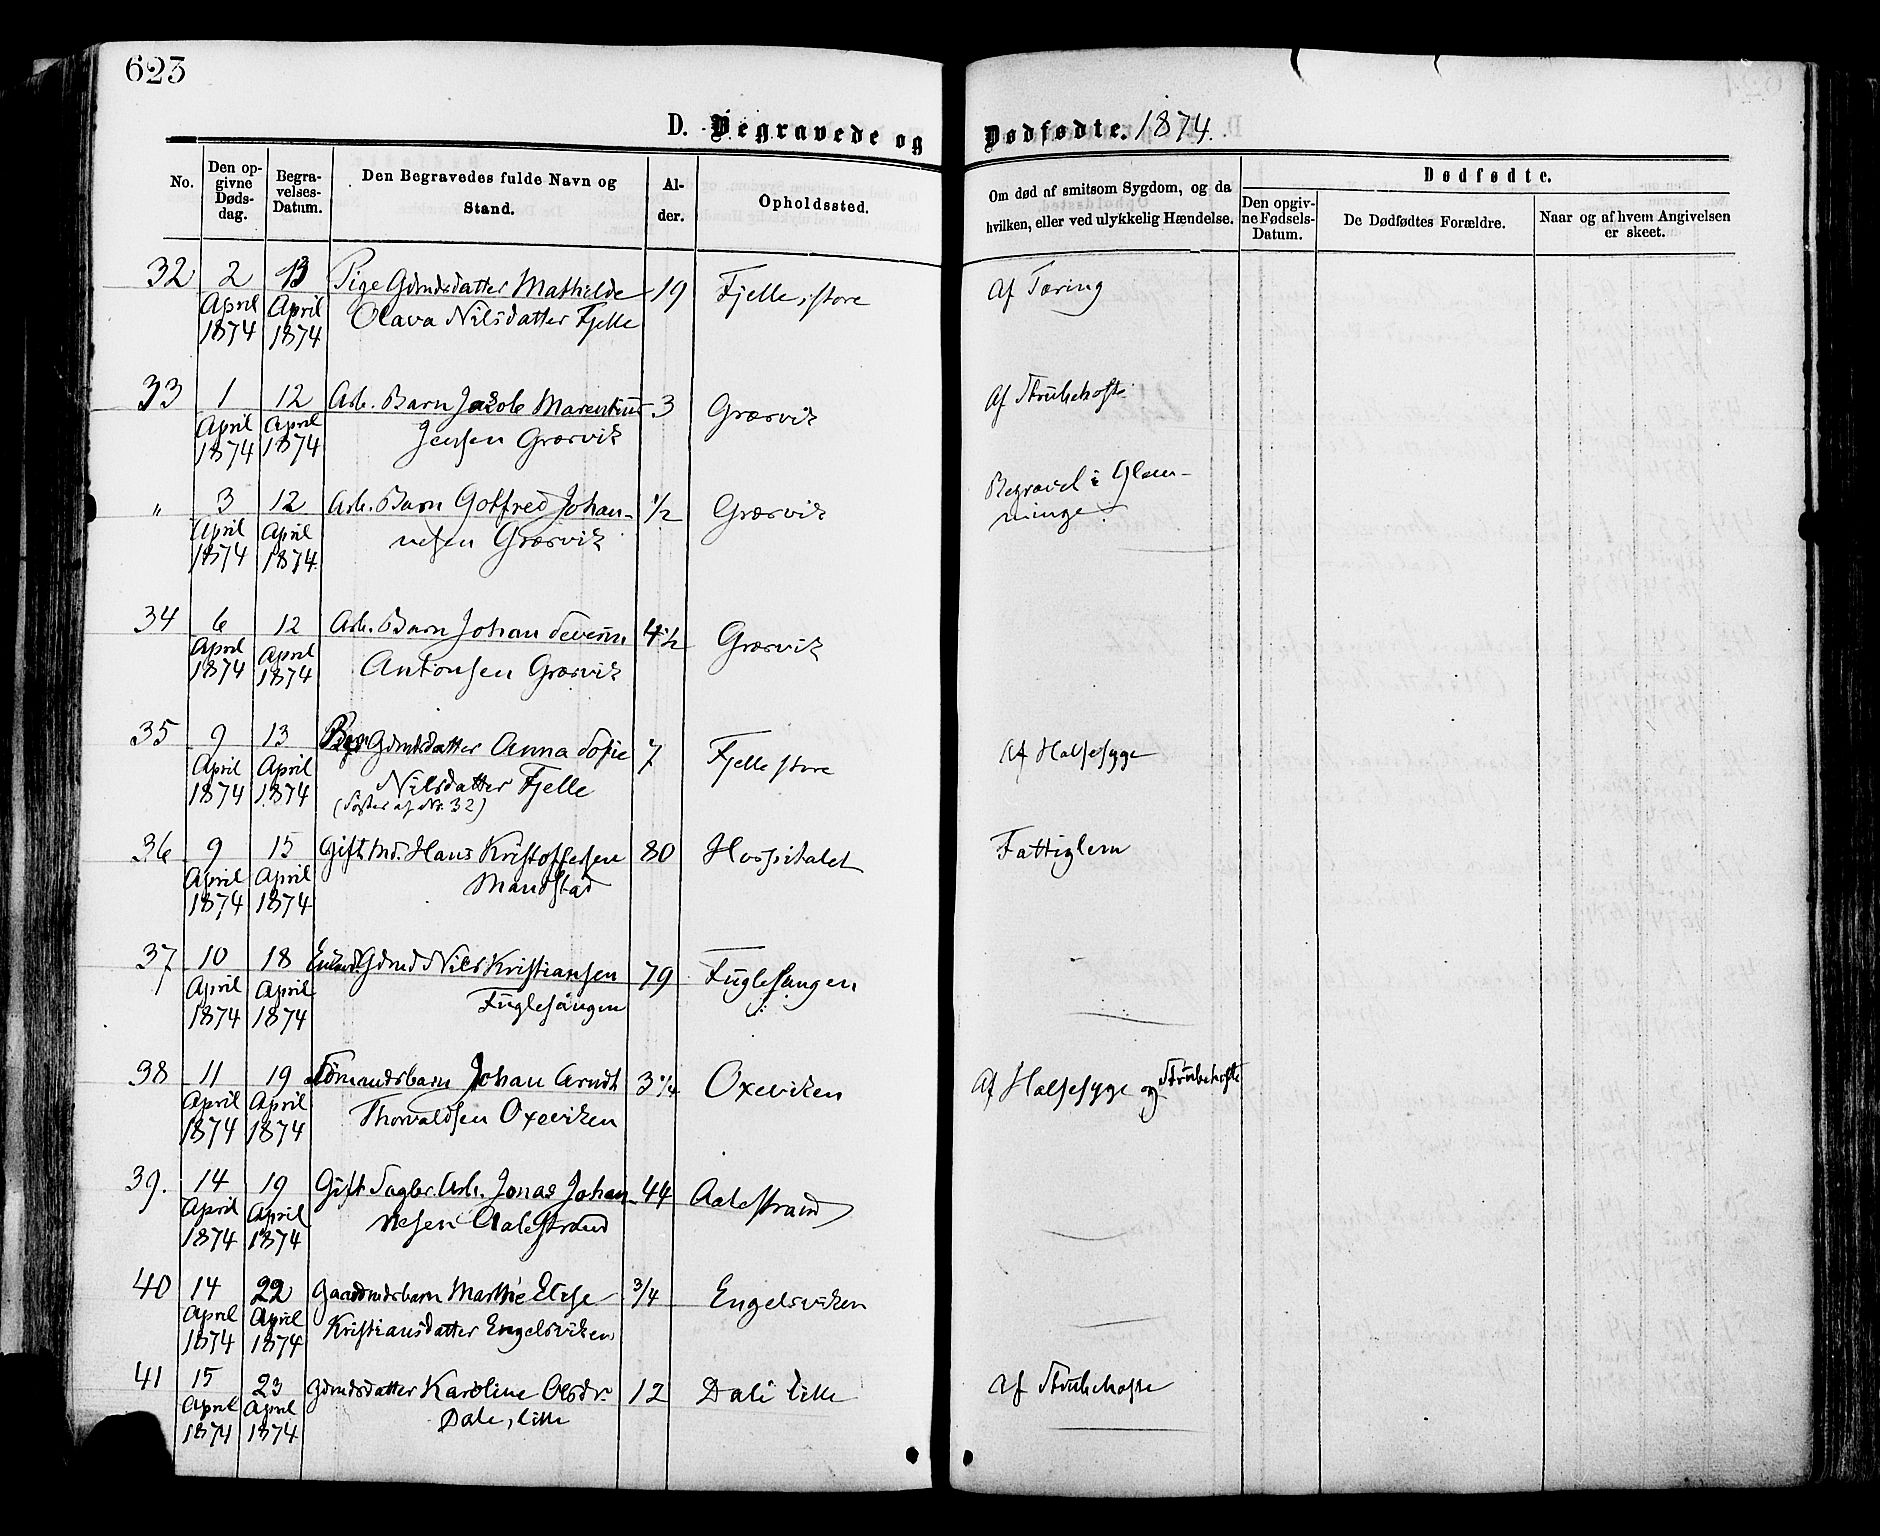 623
D. Begravede og Dødfødte. 1874.
No.
Den op-
givne
Døds-
dag.
Begra-
velses-
Datum.
Den Begravedes fulde Navn og
Stand.
Al-
der.
Opholdssted.
Om død af smitsom Sygdom, og da
hvilken, eller ved ulykkelig Hændelse.
Dødfødte.
Den opgiv-
ne Fødsels-
Datum.
De Dødfødtes Forældre.
Naar og af hvem Angivelsen
er skeet.
32 2 13 Pige Gdmdsdatter Mathilde 19 Fjelle, store Af Tæring
April April Olava Nilsdatter Fjelle
1874 1874
33 1 12 Arb. Barn Jacob Marentius 3 Græsvik Af Strubehoste
April April Jensen Græsvik
1874 1874
" 3 12 Arb. Barn Gotfred Johan- 1/2 Græsvik Begravet i Glem-
April April nesen Græsvik minge
1874 1874.
34 6 12 Arb. Barn Johan Severin 4 1/2 Græsvik
April April Antonsen Græsvik
1874 1874
35 9 13 Gdmdsdatter Anna Sofie 7 Fjelle store Af Halsesyge
April April Nilsdatter Fjelle
1874 1874 (Søster af No. 32)
36 9 15 Gift Md. Hans Kristoffersen 80 Hospitalet Fattiglem
April April Mandstad
1874 1874
37 10 18 Enkemd. Gdmd Nils Kristiansen 79 Fuglesangen
April April Fuglesangen
1874 1874
38 11 19 Sømandsbarn Johan Arndt 3 1/4 Oxeviken Af Halsesyge og Strubehoste
April April Thorvaldsen Oxeviken
1874 1874
39. 14 19 Gift Arb. Jonas Johan- 44 Aalestrand
April April nesen Aalestrand
1874 1874
40 14 22 Gaardmdsbarn Marthe Elise 3/4 Engelsviken
April April Kristiansdatter Engelsviken
1874 1874
41 15 23 Gdmdsdatter Karoline Olsdr. 12 Dale lille Af Strubehoste
April April Dale, lille
1874 1874